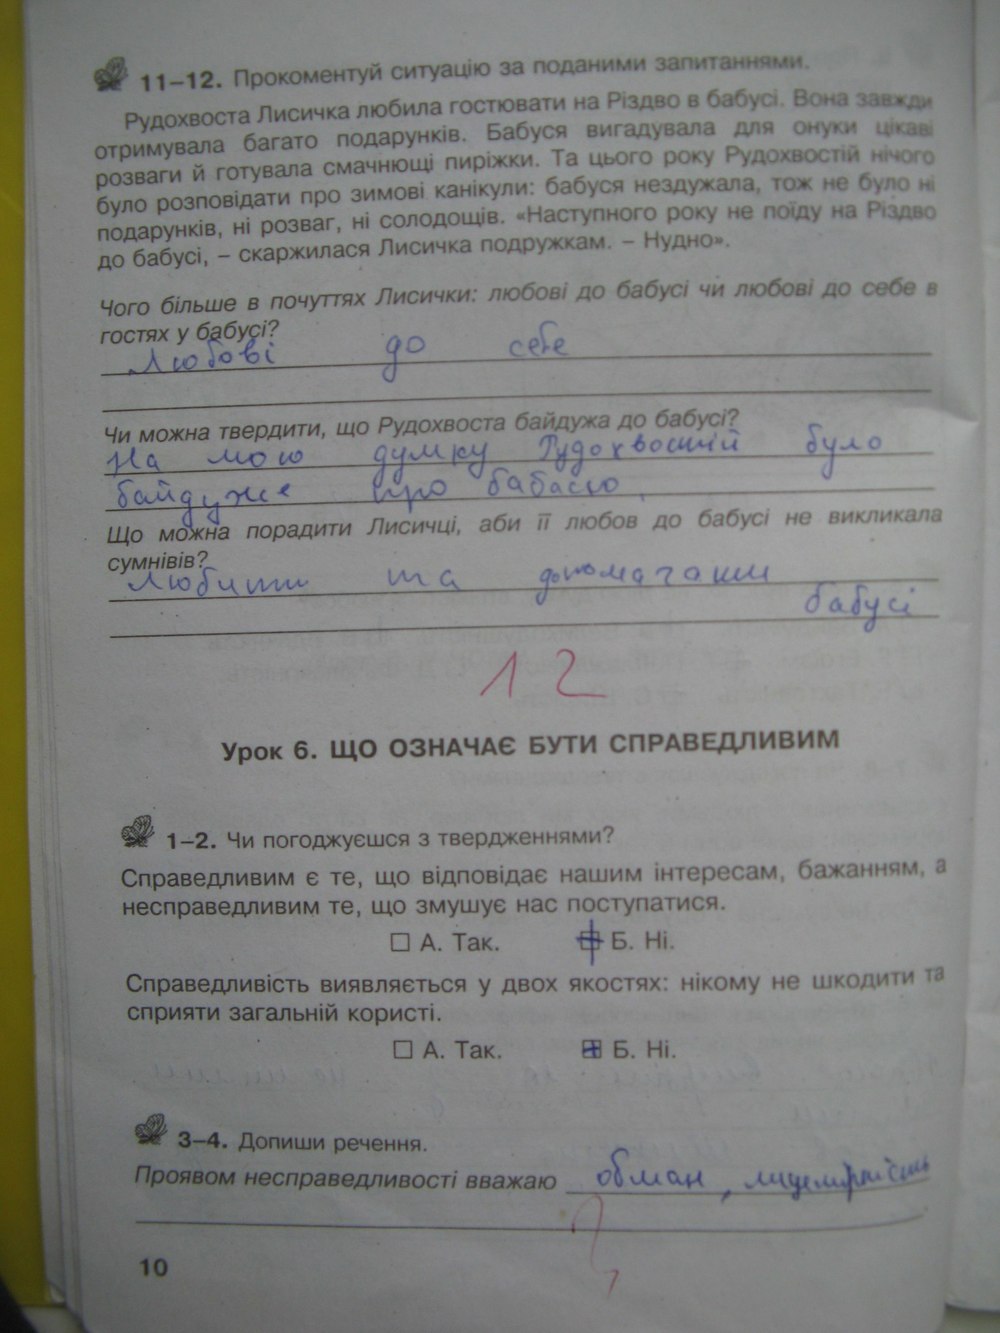 11–12. Прокоментуй ситуацію за поданими запитаннями.
Рудохвоста Лисичка любила гостювати на Різдво в бабусі. Вона завжди
отримувала багато подарунків. Бабуся вигадувала для онуки цікаві
розваги й готувала смачнющі пиріжки. Та цього року Рудохвостій нічого
було розповідати про зимові канікули: бабуся нездужала, тож не було ні
подарунків, ні розваг, ні солодощів. «Наступного року не поїду на Різдво
до бабусі, – скаржилася Лисичка подружкам. – Нудно».
Чого більше в почуттях Лисички: любові до бабусі чи любові до себе в
гостях у бабусі?
Любові до себе
Чи можна твердити, що Рудохвоста байдужа до бабусі?
На мою думку Рудохвостій було
байдуже про
Що можна порадити Лисичці, аби її любов до бабусі не викликала
сумнівів?
Любити та допомагати
бабусі
12
Урок 6. ЩО ОЗНАЧАЄ БУТИ СПРАВЕДЛИВИМ
1–2. Чи погоджуєшся з твердженнями?
Справедливим є те, що відповідає нашим інтересам, бажанням, а
несправедливим те, що змушує нас поступатися.
А. Так. Б. Ні.
Справедливість виявляється у двох якостях: нікому не шкодити та
сприяти загальній користі.
А. Так. Б. Ні.
3–4. Допиши речення.
Проявом несправедливості вважаю обман, лицемірність
10